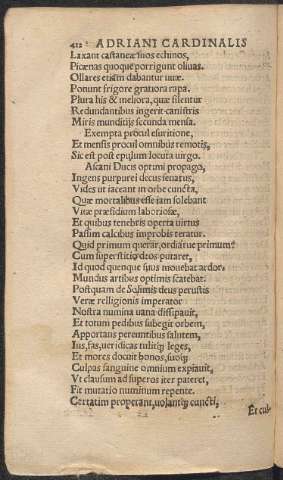 412 ADRIANI CARDINALIS
Laxant castaneæ suos echinos,
Picænas quoque porrigunt oliuas.
Ollares etiam dabantur uuæ.
Ponunt frigore gratiora rapa.
Plura his & meliora, quæ silentur
Redundantibus ingerit canistris
Miris munditijs secunda mensa.
Exempta procul esuritione,
Et mensis procul omnibus remotis,
Sic est post epulum locuta uirgo.
Ascani Ducis optimi propago,
Ingens purpurei decus senatus,
Vides ut iaceant in orbe cuncta,
Quæ mortalibus esse iam solebant
Vitæ præsidium laboriosæ,
Et quibus tenebris operta uirtus
Passim calcibus improbis teratur.
Quid primum querar, ordiarue primum?
Cum superstitio deos putaret,
Id quod quenque suus mouebat ardor.
Mundus artibus optimis scatebat.
Postquam de Solimis deus perustis
Veræ relligionis imperator
Nostra numina uana dissipauit,
Et totum pedibus subegit orbem,
Apportans pereuntibus salutem,
Ius, fas, ueridicas tulitq; leges,
Et mores docuit bonos, suoq;
Culpas sanguine omnium expiauit,
Vt clausum ad superos iter pateret,
Fit mutatio numinum repente.
Certatim properant, uolantq; cuncti,
Et cul-